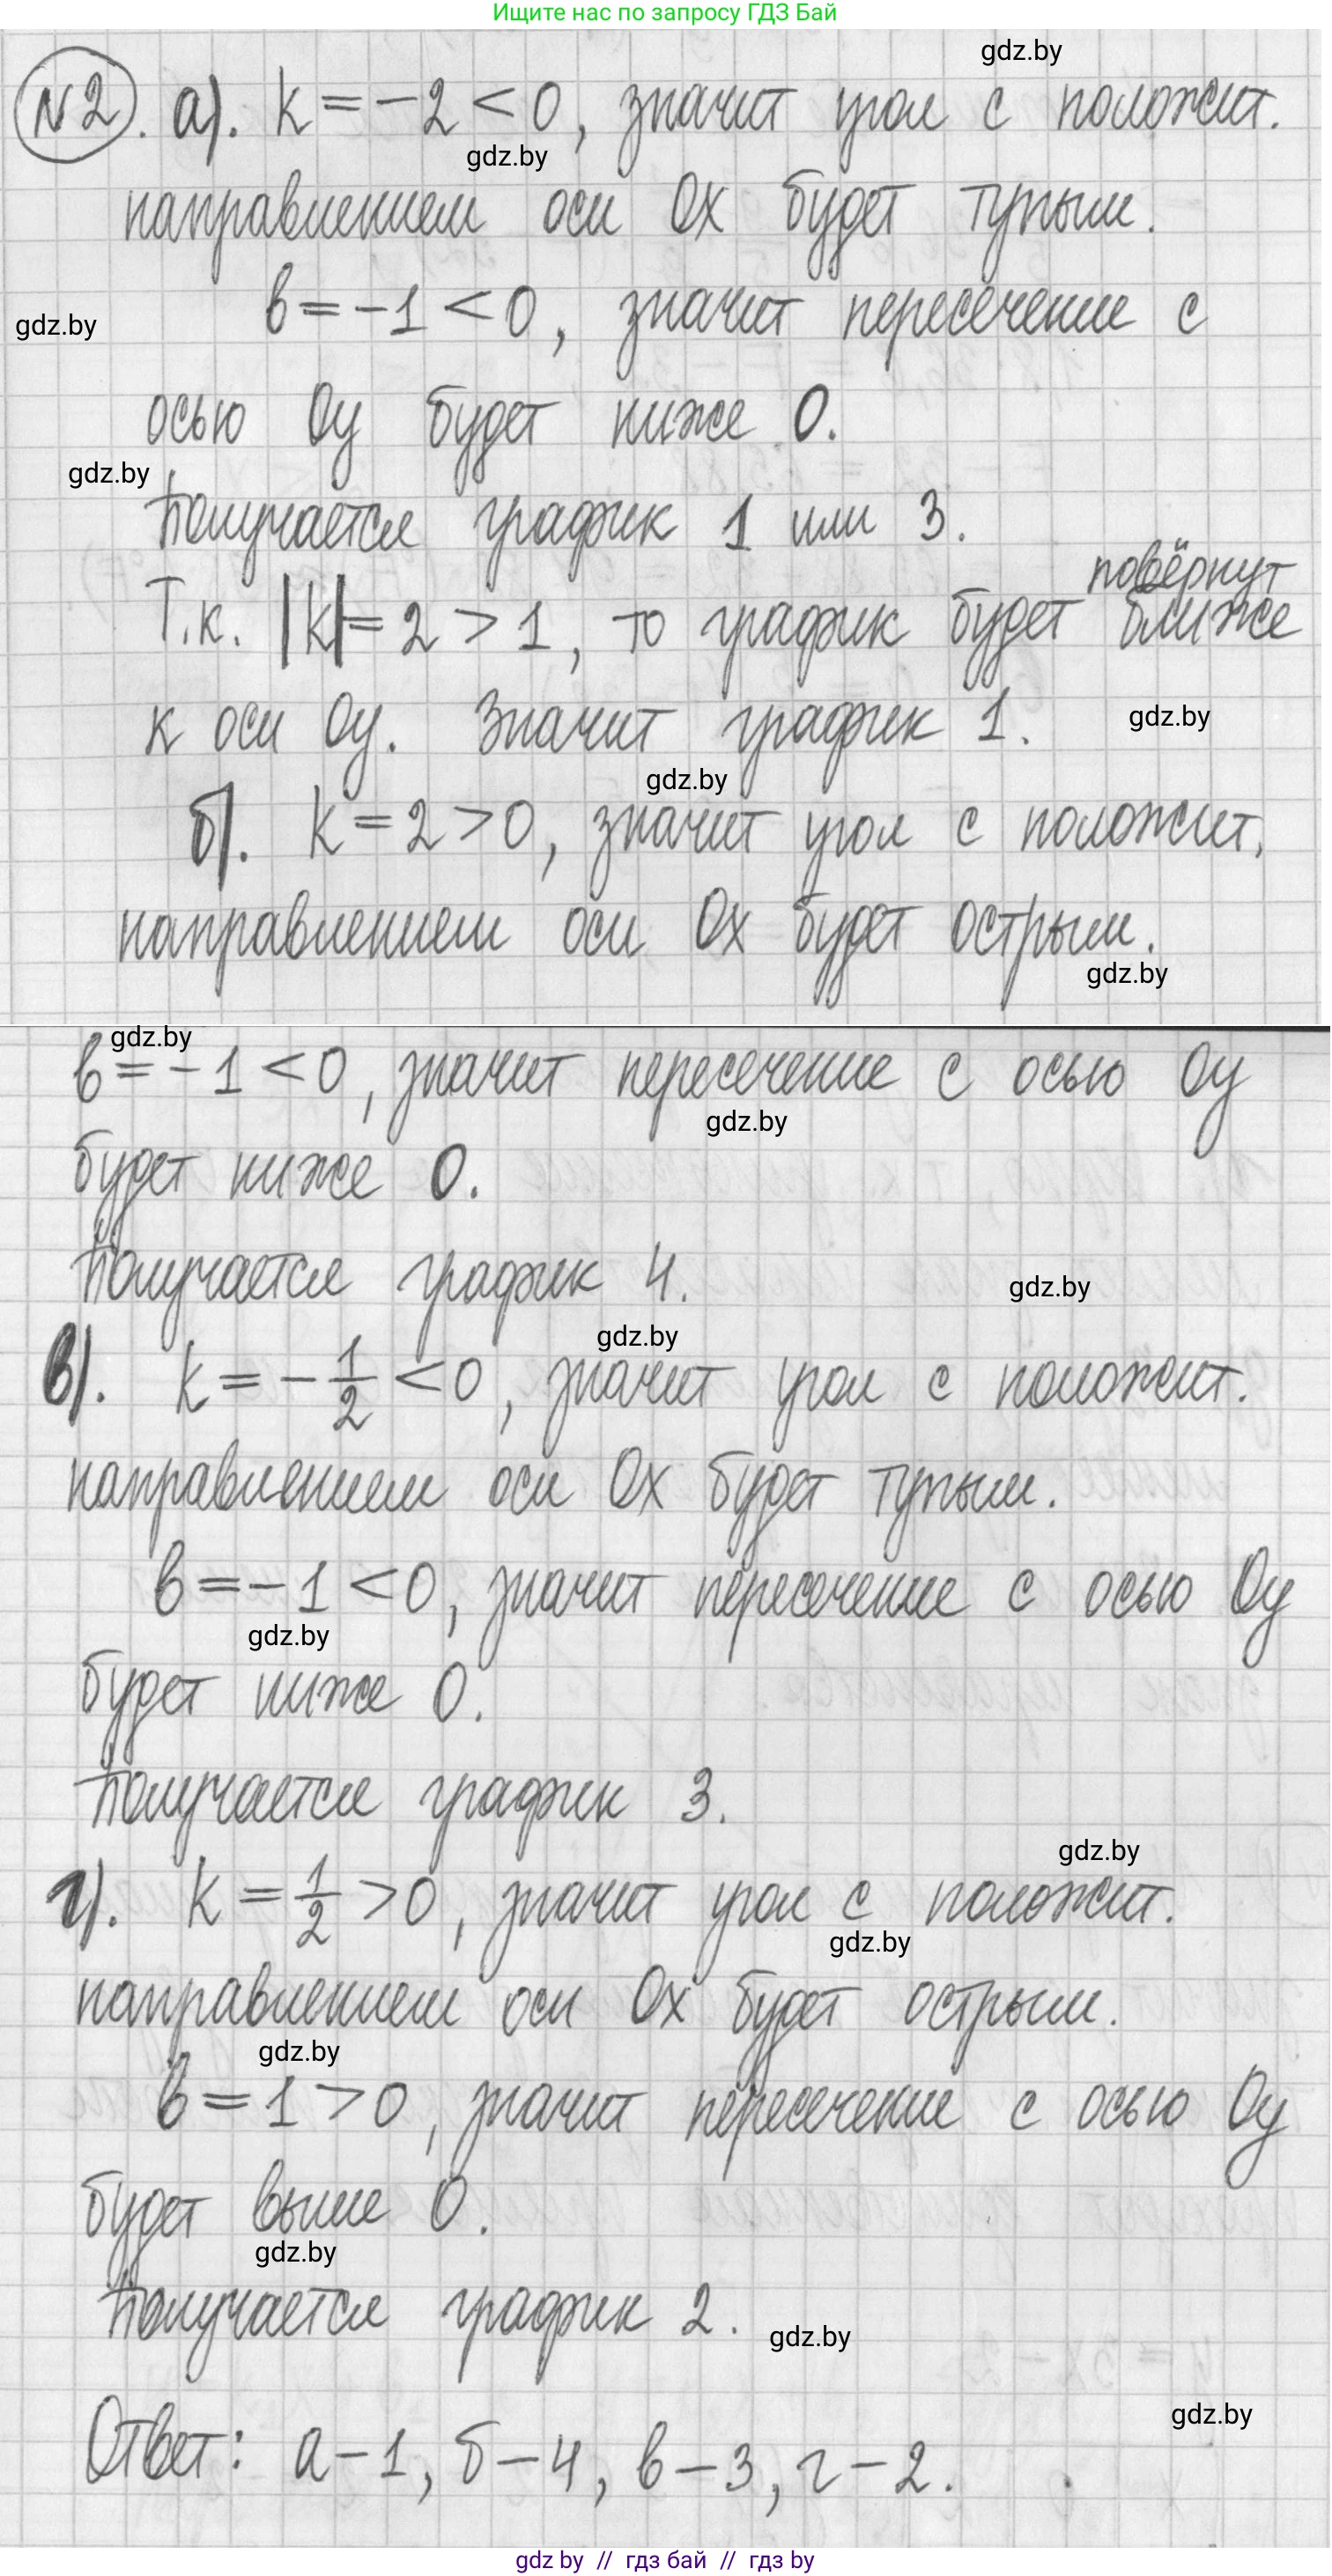 Ищите нас по запросу ГДЗ Бай
gdz.by
№2. а). k = -2 < 0, значит угол с положит.
gdz.by
направлением оси Ox будет тупым.
в = -1 < 0, значит пересечение с
gdz.by
осью Oy будет ниже 0.
gdz.by
Получается график 1 или 3.
повёрнут
Т.к. |k| = 2 > 1, то график будет ближе
к оси Oy. Значит график 1.
gdz.by
gdz.by
б). k = 2 > 0, значит угол с положит.
направлением оси Ox будет острым.
gdz.by
gdz.by
в = -1 < 0, значит пересечение с осью Oy
gdz.by
будет ниже 0.
Получается график 4.
gdz.by
gdz.by
в). k = -1/2 < 0, значит угол с положит.
направлением оси Ox будет тупым.
в = -1 < 0, значит пересечение с осью Oy
gdz.by
будет ниже 0.
Получается график 3.
gdz.by
г). k = 1/2 > 0, значит угол с положит.
gdz.by
направлением оси Ox будет острым.
gdz.by
в = 1 > 0, значит пересечение с осью Oy
будет выше 0.
gdz.by
Получается график 2.
gdz.by
gdz.by
Ответ: а - 1, б - 4, в - 3, г - 2.
gdz by // гдз бай // гдз by